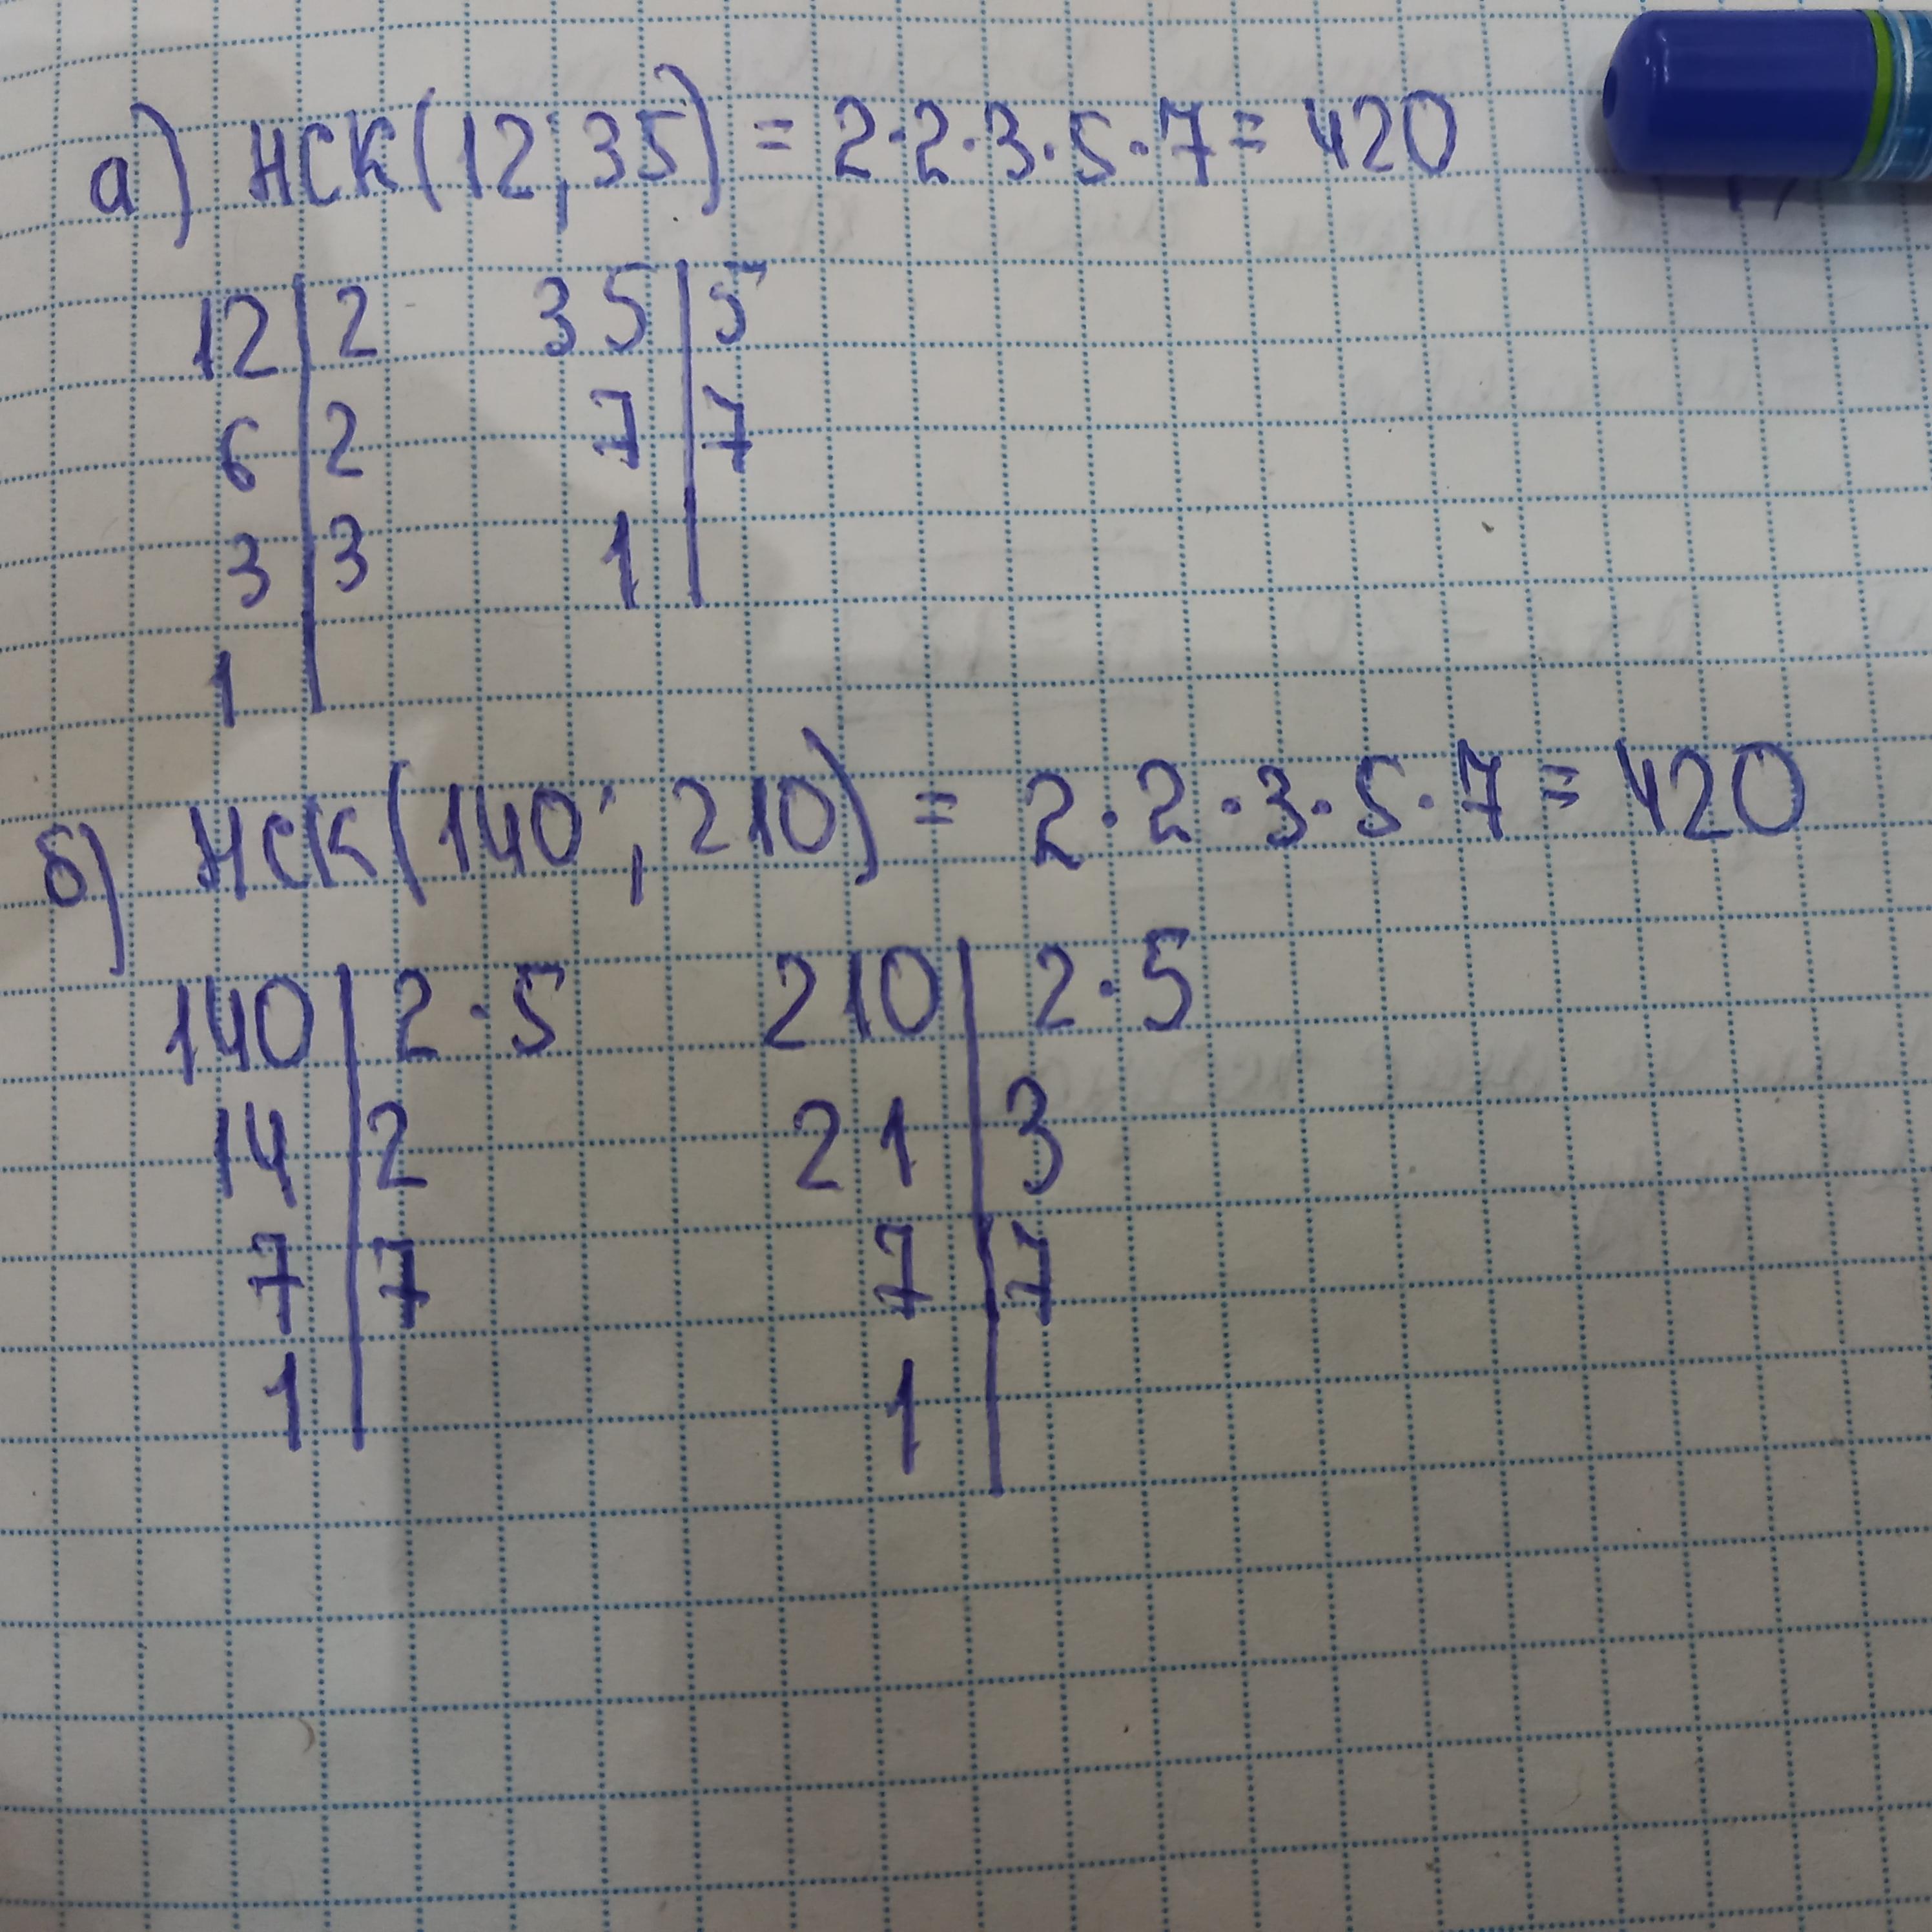 а) НСК(12; 35) = 2·2·3·5·7 = 420
12 | 2 35 | 5
6 | 2 7 | 7
3 | 3 1 |
1 |
б) НСК(140; 210) = 2·2·3·5·7 = 420
140 | 2·5 210 | 2·5
14 | 2 21 | 3
7 | 7 7 | 7
1 | 1 |